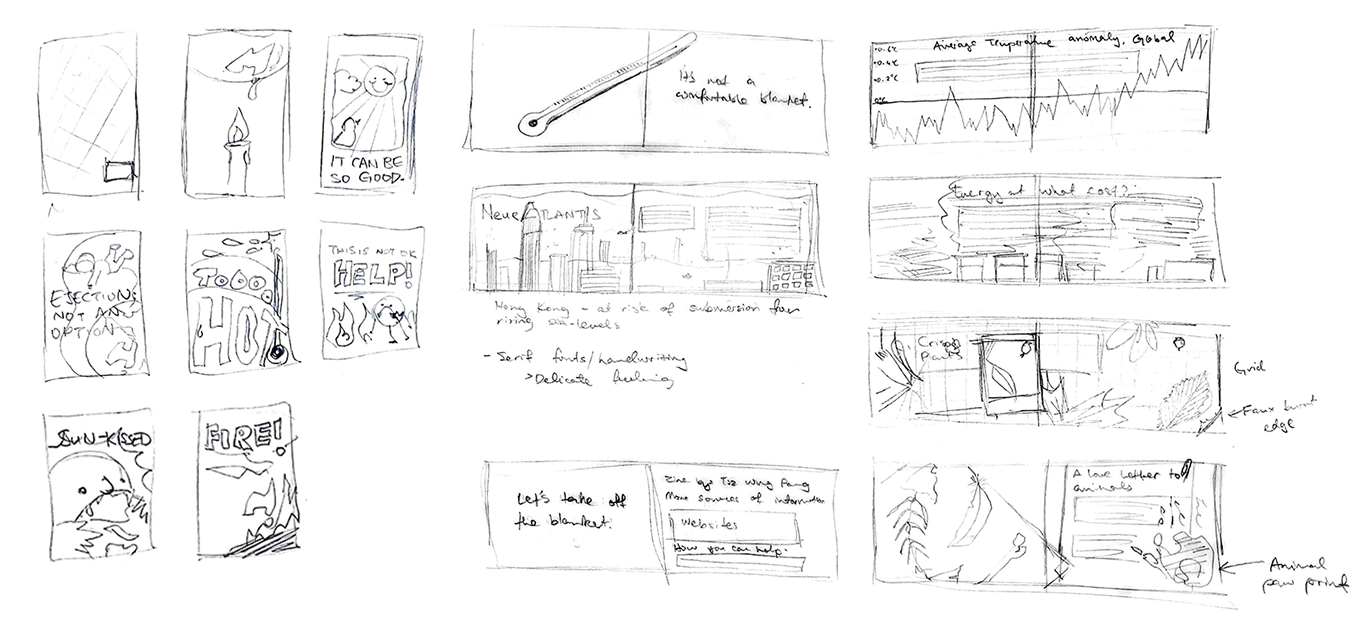 IT CAN BE
SO GOOD.
EJECTION:
NOT AN
OPTION
TOOO
HOT
THIS IS NOT OK
HELP!
SUN-KISSED
FIRE!
It's not a
comfortable blanket.
Neue ATLANTIS
Hong Kong - at risk of submersion from
rising sea-levels
- Serif fonts/handwriting
>Delicate feeling
Let's take off
the blanket.
Zine by: Tsz Wing Pang
More sources of information
Websites
How you can help.
Average Temperature anomaly, Global
+0.6°C
+0.4°C
+0.2°C
0°C
Energy at what cost?
Crispy
Plants
Grid
Faux burnt
edge
A love letter to
animals
Animal
paw print